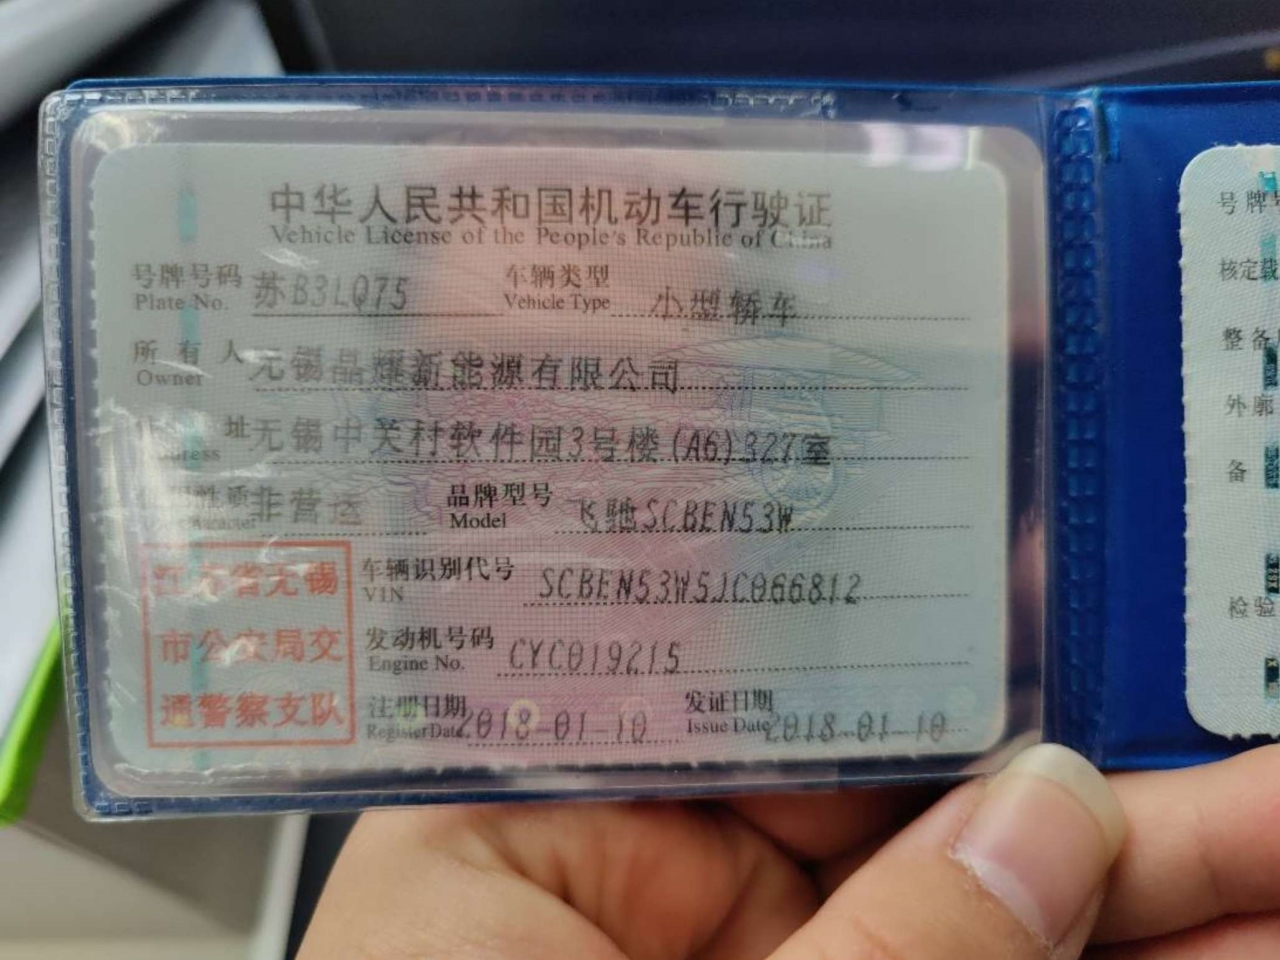 中华人民共和国机动车行驶证
Vehicle License of the People's Republic of China
号牌号码 苏B3LQ75 车辆类型 小型轿车
Plate No. Vehicle Type
所有人 无锡晶耀新能源有限公司
Owner
址 无锡中关村软件园3号楼(A6)327室
性质 非营运 品牌型号 飞驰SCBEN53W
Model
江苏省无锡
市公安局交
通警察支队
车辆识别代号 SCBEN53W5JC066812
VIN
发动机号码 CYC019215
Engine No.
注册日期 2018-01-10 发证日期 2018-01-10
Register Date Issue Date
号牌
核定载
整备
外廓
备
检验